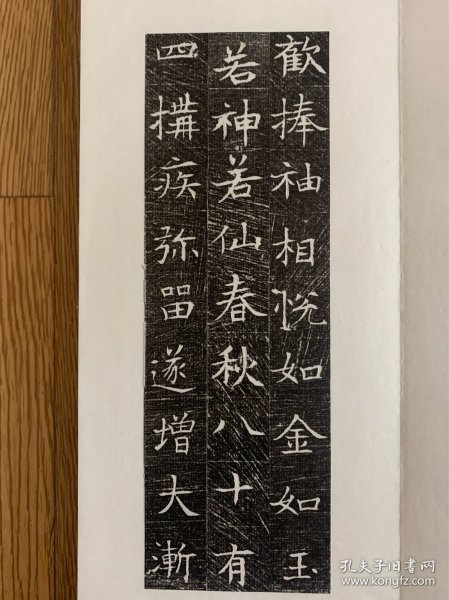 歡捧袖相悅如金如玉
若神若仙春秋八十有
四搆疾弥留遂增大漸
孔夫子旧书网
www.kongfz.com